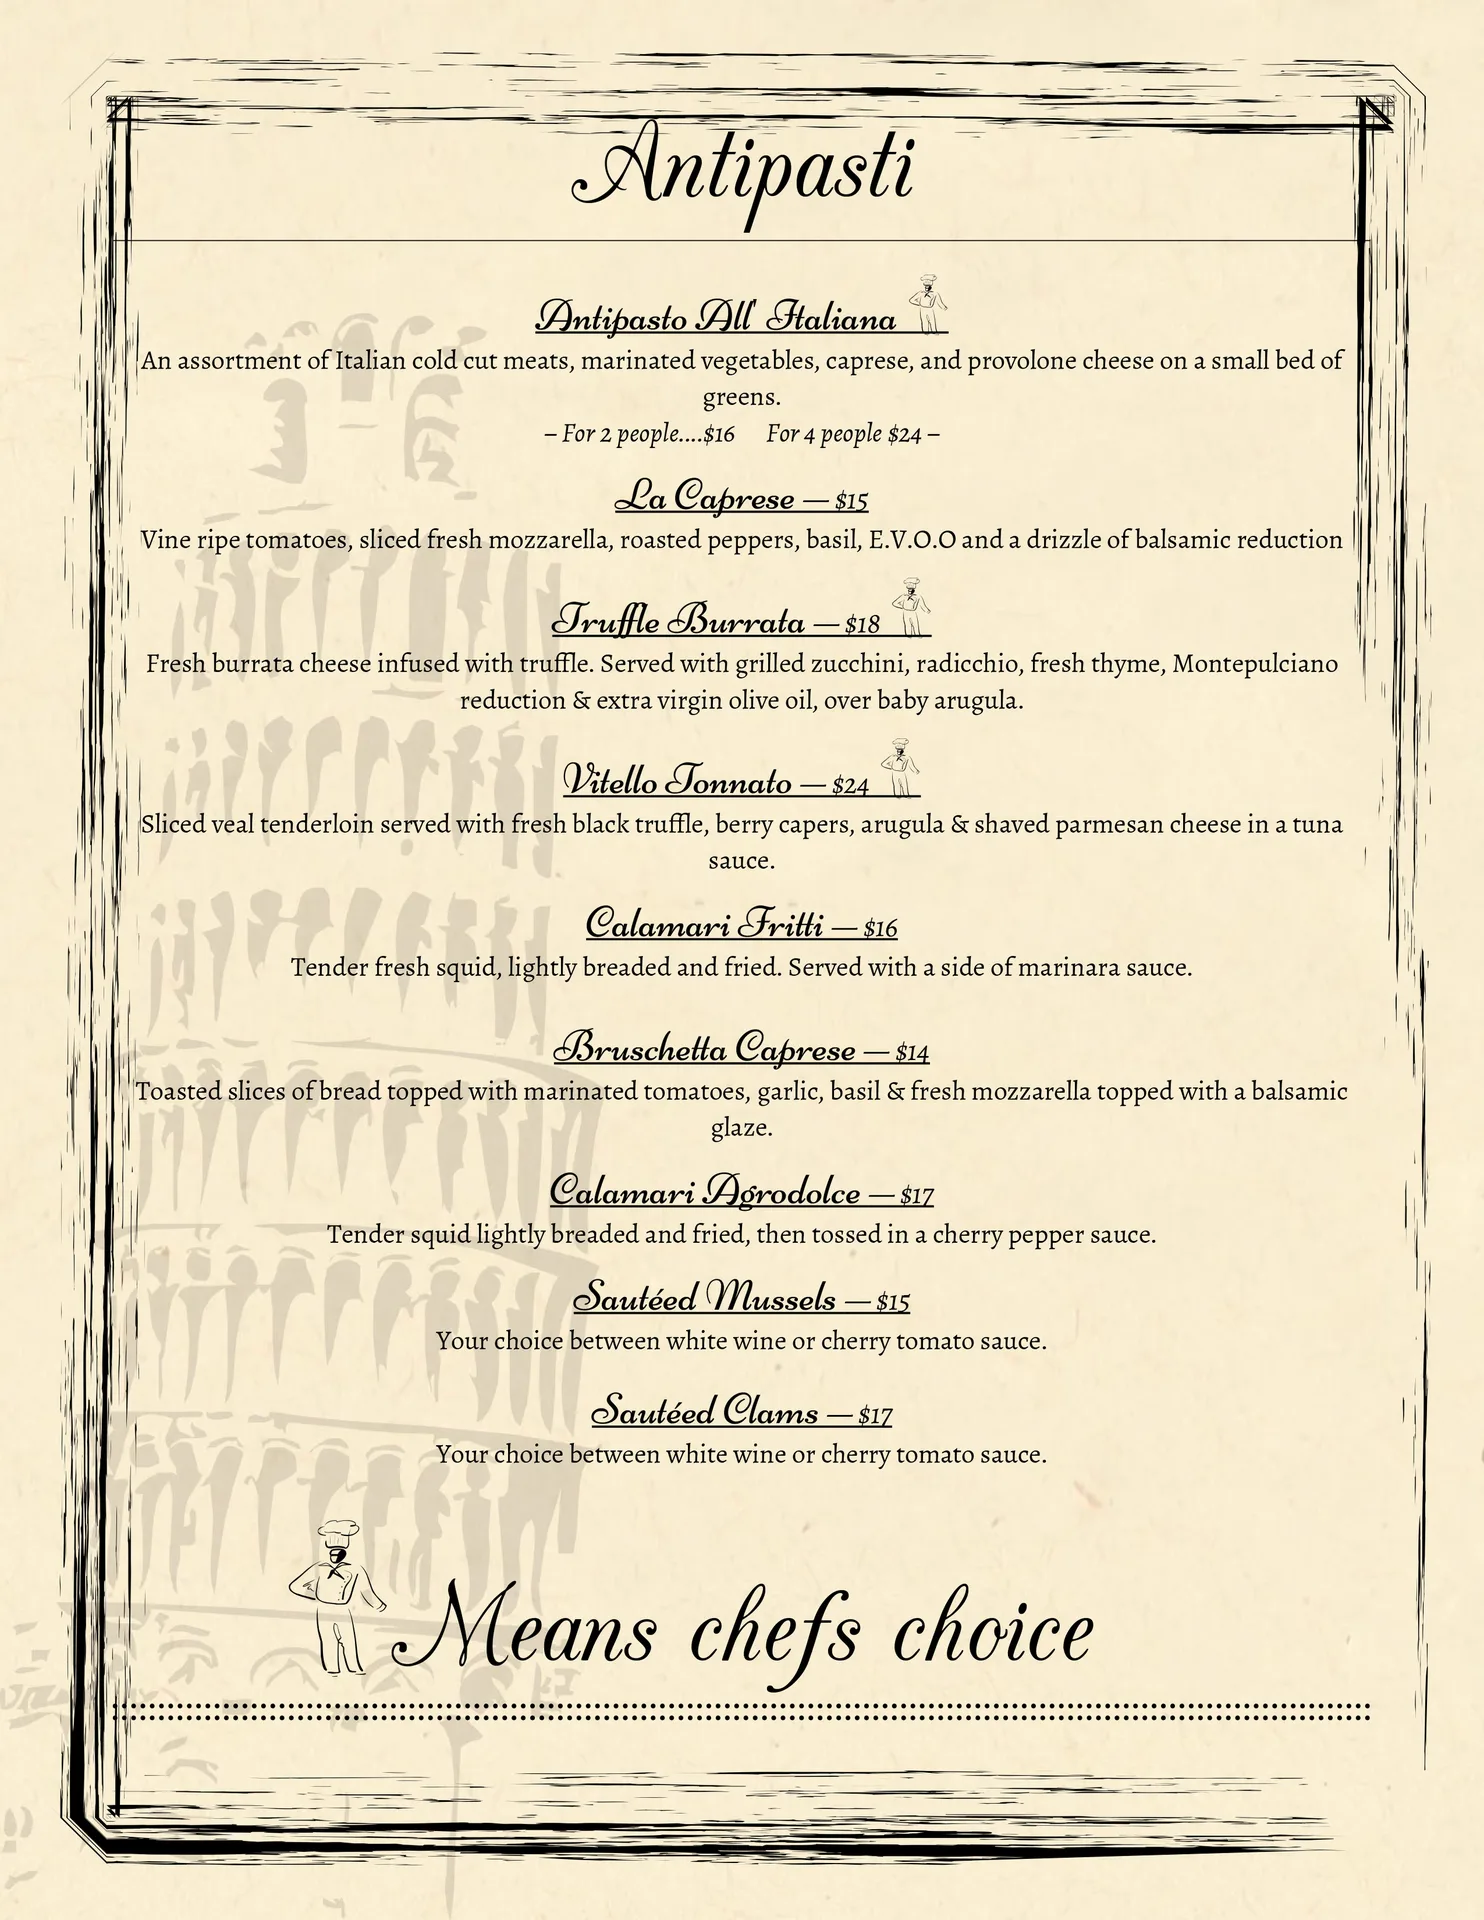 Antipasti
Antipasto All' Italiana
An assortment of Italian cold cut meats, marinated vegetables, caprese, and provolone cheese on a small bed of
greens.
– For 2 people....$16 For 4 people $24 –
La Caprese — $15
Vine ripe tomatoes, sliced fresh mozzarella, roasted peppers, basil, E.V.O.O and a drizzle of balsamic reduction
Truffle Burrata — $18
Fresh burrata cheese infused with truffle. Served with grilled zucchini, radicchio, fresh thyme, Montepulciano
reduction & extra virgin olive oil, over baby arugula.
Vitello Tonnato — $24
Sliced veal tenderloin served with fresh black truffle, berry capers, arugula & shaved parmesan cheese in a tuna
sauce.
Calamari Fritti — $16
Tender fresh squid, lightly breaded and fried. Served with a side of marinara sauce.
Bruschetta Caprese — $14
Toasted slices of bread topped with marinated tomatoes, garlic, basil & fresh mozzarella topped with a balsamic
glaze.
Calamari Agrodolce — $17
Tender squid lightly breaded and fried, then tossed in a cherry pepper sauce.
Sautéed Mussels — $15
Your choice between white wine or cherry tomato sauce.
Sautéed Clams — $17
Your choice between white wine or cherry tomato sauce.
Means chefs choice